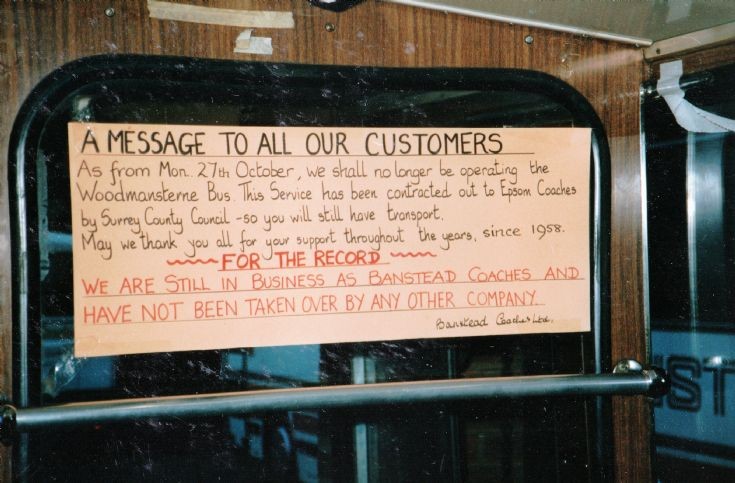 A MESSAGE TO ALL OUR CUSTOMERS
As from Mon. 27th October, we shall no longer be operating the
Woodmansterne Bus. This Service has been contracted out to Epsom Coaches
by Surrey County Council - so you will still have transport.
May we thank you all for your support throughout the years, since 1958.
FOR THE RECORD
WE ARE STILL IN BUSINESS AS BANSTEAD COACHES AND
HAVE NOT BEEN TAKEN OVER BY ANY OTHER COMPANY.
Banstead Coaches Ltd.
IST